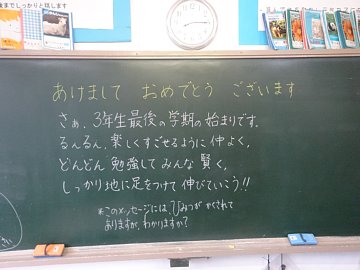 までしっかりと話します
あけまして おめでとう ございます
さぁ、3年生最後の学期の始まりです。
るんるん、楽しくすごせるように仲よく、
どんどん勉強してみんな賢く、
しっかり地に足をつけて伸びていこう!!
*このメッセージには、ひみつがかくされて
ありますが、わかりますか?